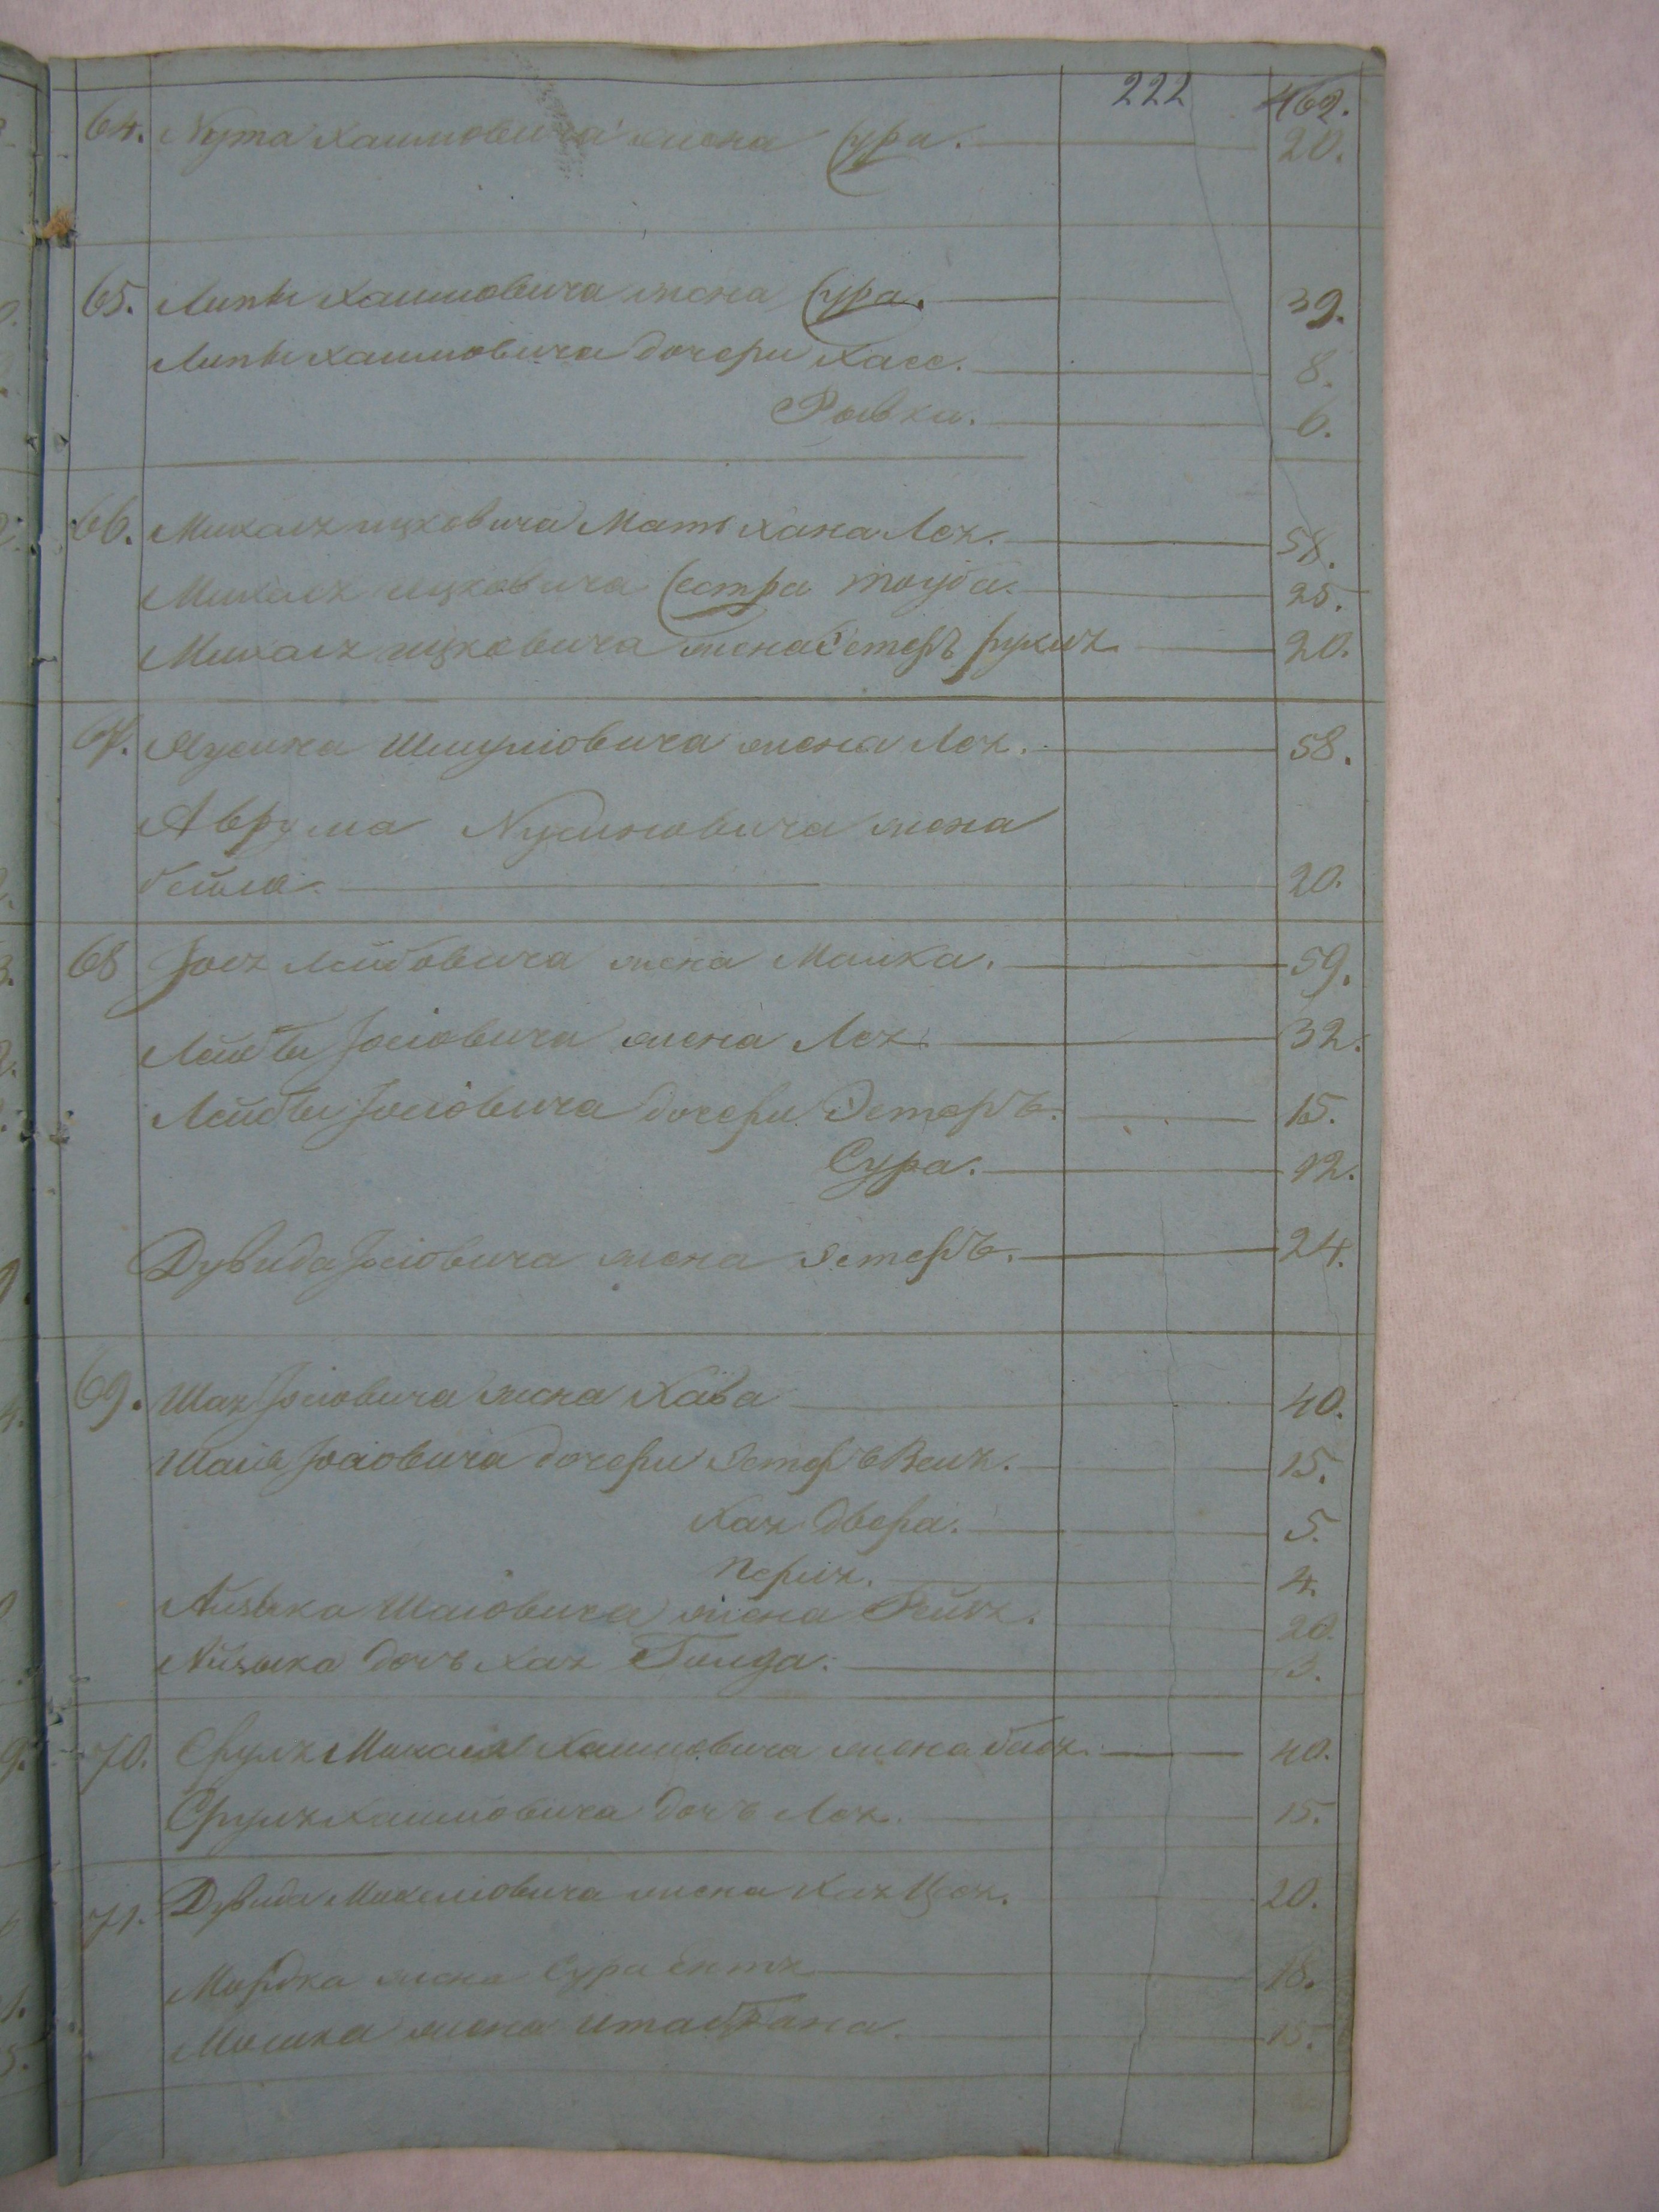 222 469.
64. Нута Хаимовича жена Сура. 20.
65. Липы Хаимовича жена Сура. 39.
Липы Хаимовича дочери Хася. 8.
Рывка. 6.
66. Михля ицковича Мать хана Лея. 58.
Михля ицковича сестра тауба. 25.
Михеля ицковича жена Эстеръ рухля 20.
67. Нусина Шмулиовича жена Лея. 58.
Аврума Нусиновича жена
бейла. 20.
68 Joся лейбовича жена Малка. 59.
Лейбы Joсіовича жена Лея 32.
Лейбы Joсіовича дочери Эстеръ. 15.
Сура. 12.
Дувида Joсіовича жена Эстеръ. 24.
69. Шая Joсіовича жена Хава 40.
Шаіи Joсіовича дочери Эстеръ Беля. 15.
Хая двера. 5.
перля. 4.
Айзыка Шаіовича жена Рейзя. 20.
Айзыка дочъ хая Голда. 3.
70. Сруля Михаля Хаимовича жена бася. 40.
Сруля хаимовича дочъ Лея. 15.
71. Дувида Михелiовича жена хая Цѣся. 20.
Мордка жена Сура 18.
Мошка жена ита 15.